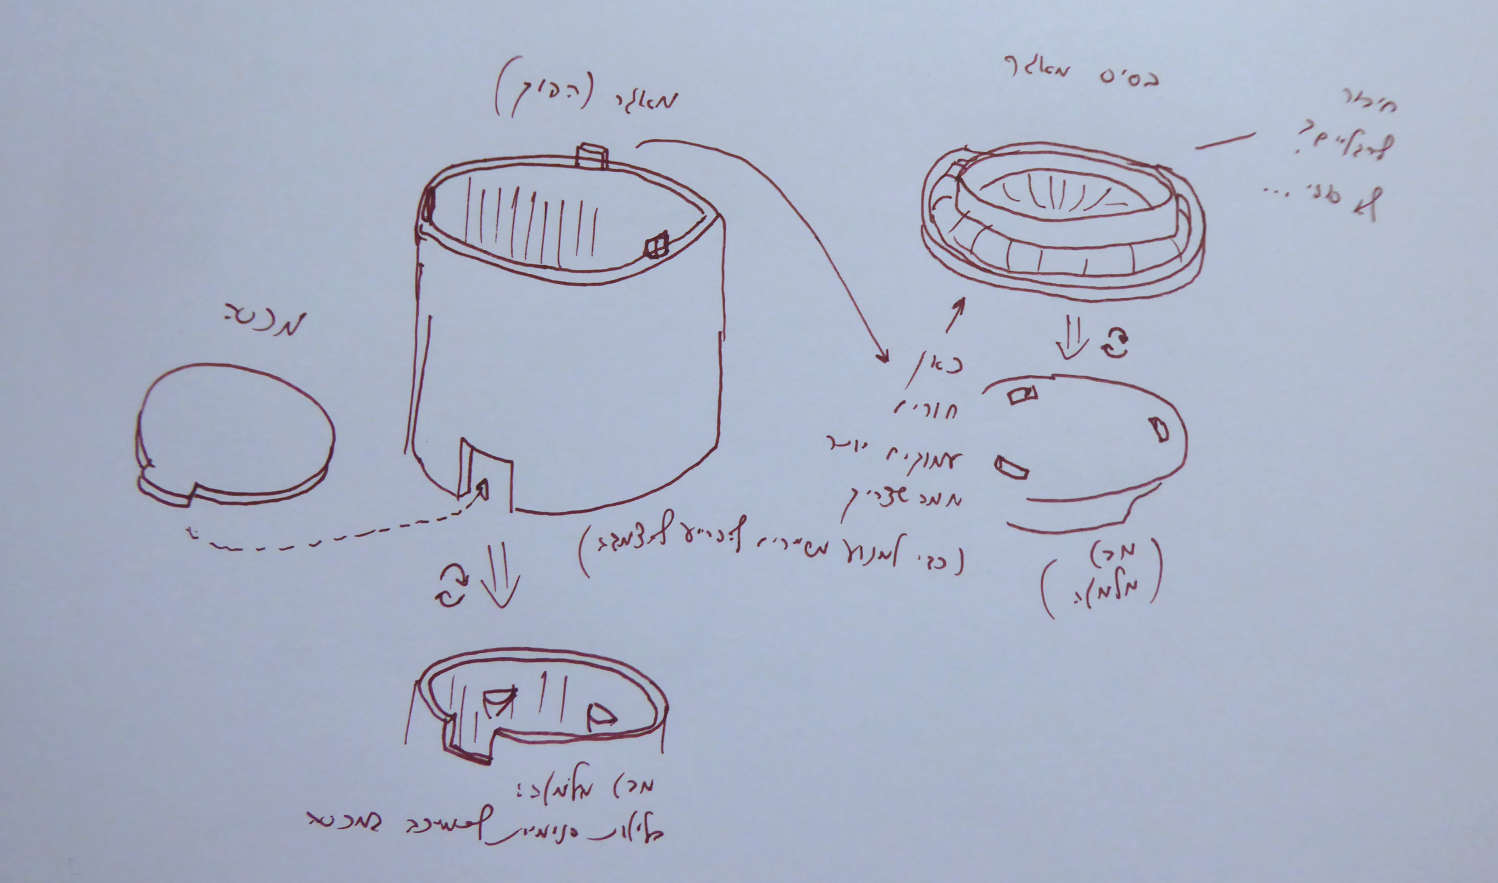 מאגר (הפוך)
בסיס מאגר
חיבור
לרגליים?
מכסה
כאן
חורים
עמוקים יותר
ממה שצריך
(כדי למנוע משיירים להפריע להצמדה)
(מבט
מלמטה)
מבט מלמטה:
בליטות פנימיות לתמיכה במכסה